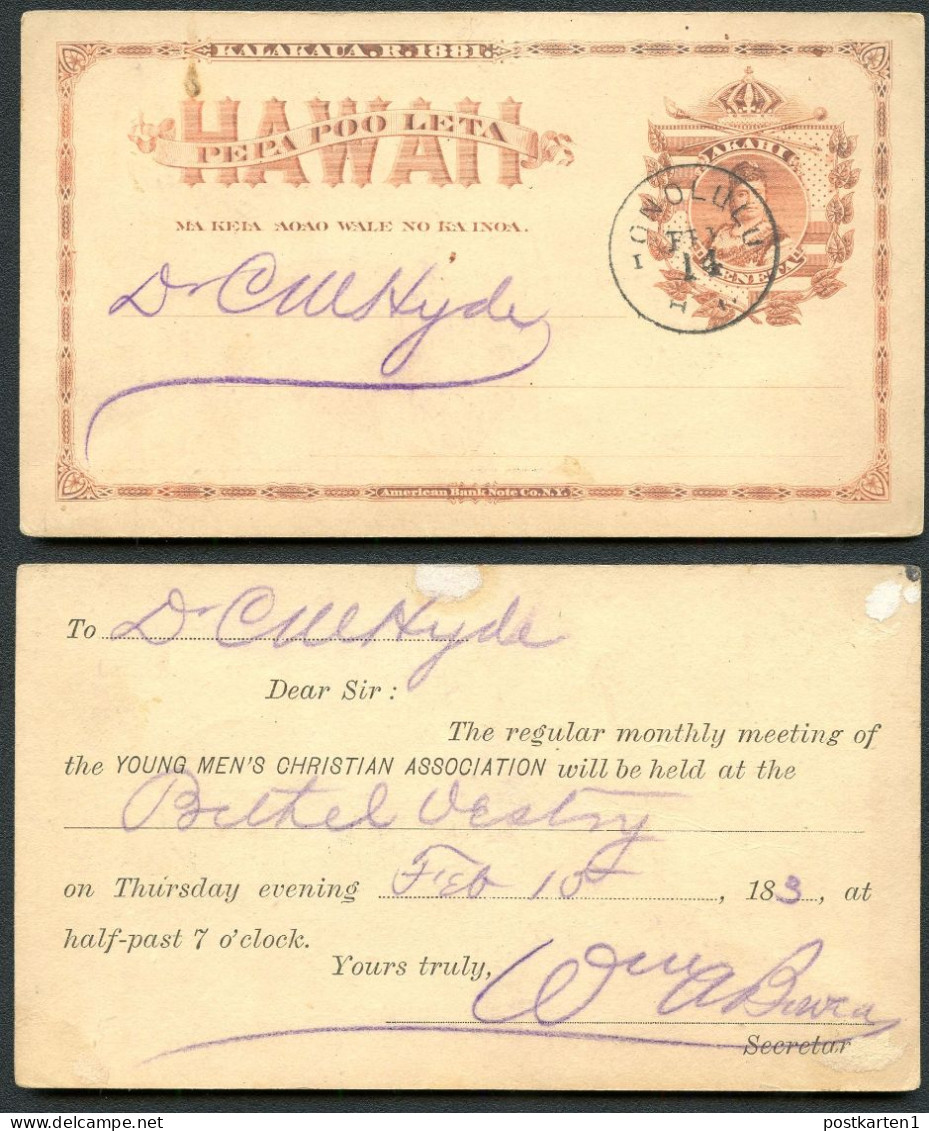 KALAKAUA. R. 1881.
HAWAII
PEPA POO LETA
MA KEIA AOAO WALE NO KA INOA.
AKAHI
KENETA
HONOLULU
FEB
14
H I
Dr C M Hyde
American Bank Note Co. N.Y.
To Dr C M Hyde
Dear Sir :
The regular monthly meeting of
the YOUNG MEN'S CHRISTIAN ASSOCIATION will be held at the
Bethel Vestry
on Thursday evening Feb 15, 183, at
half-past 7 o'clock.
Yours truly,
Wm A
Secretar
postkarten1